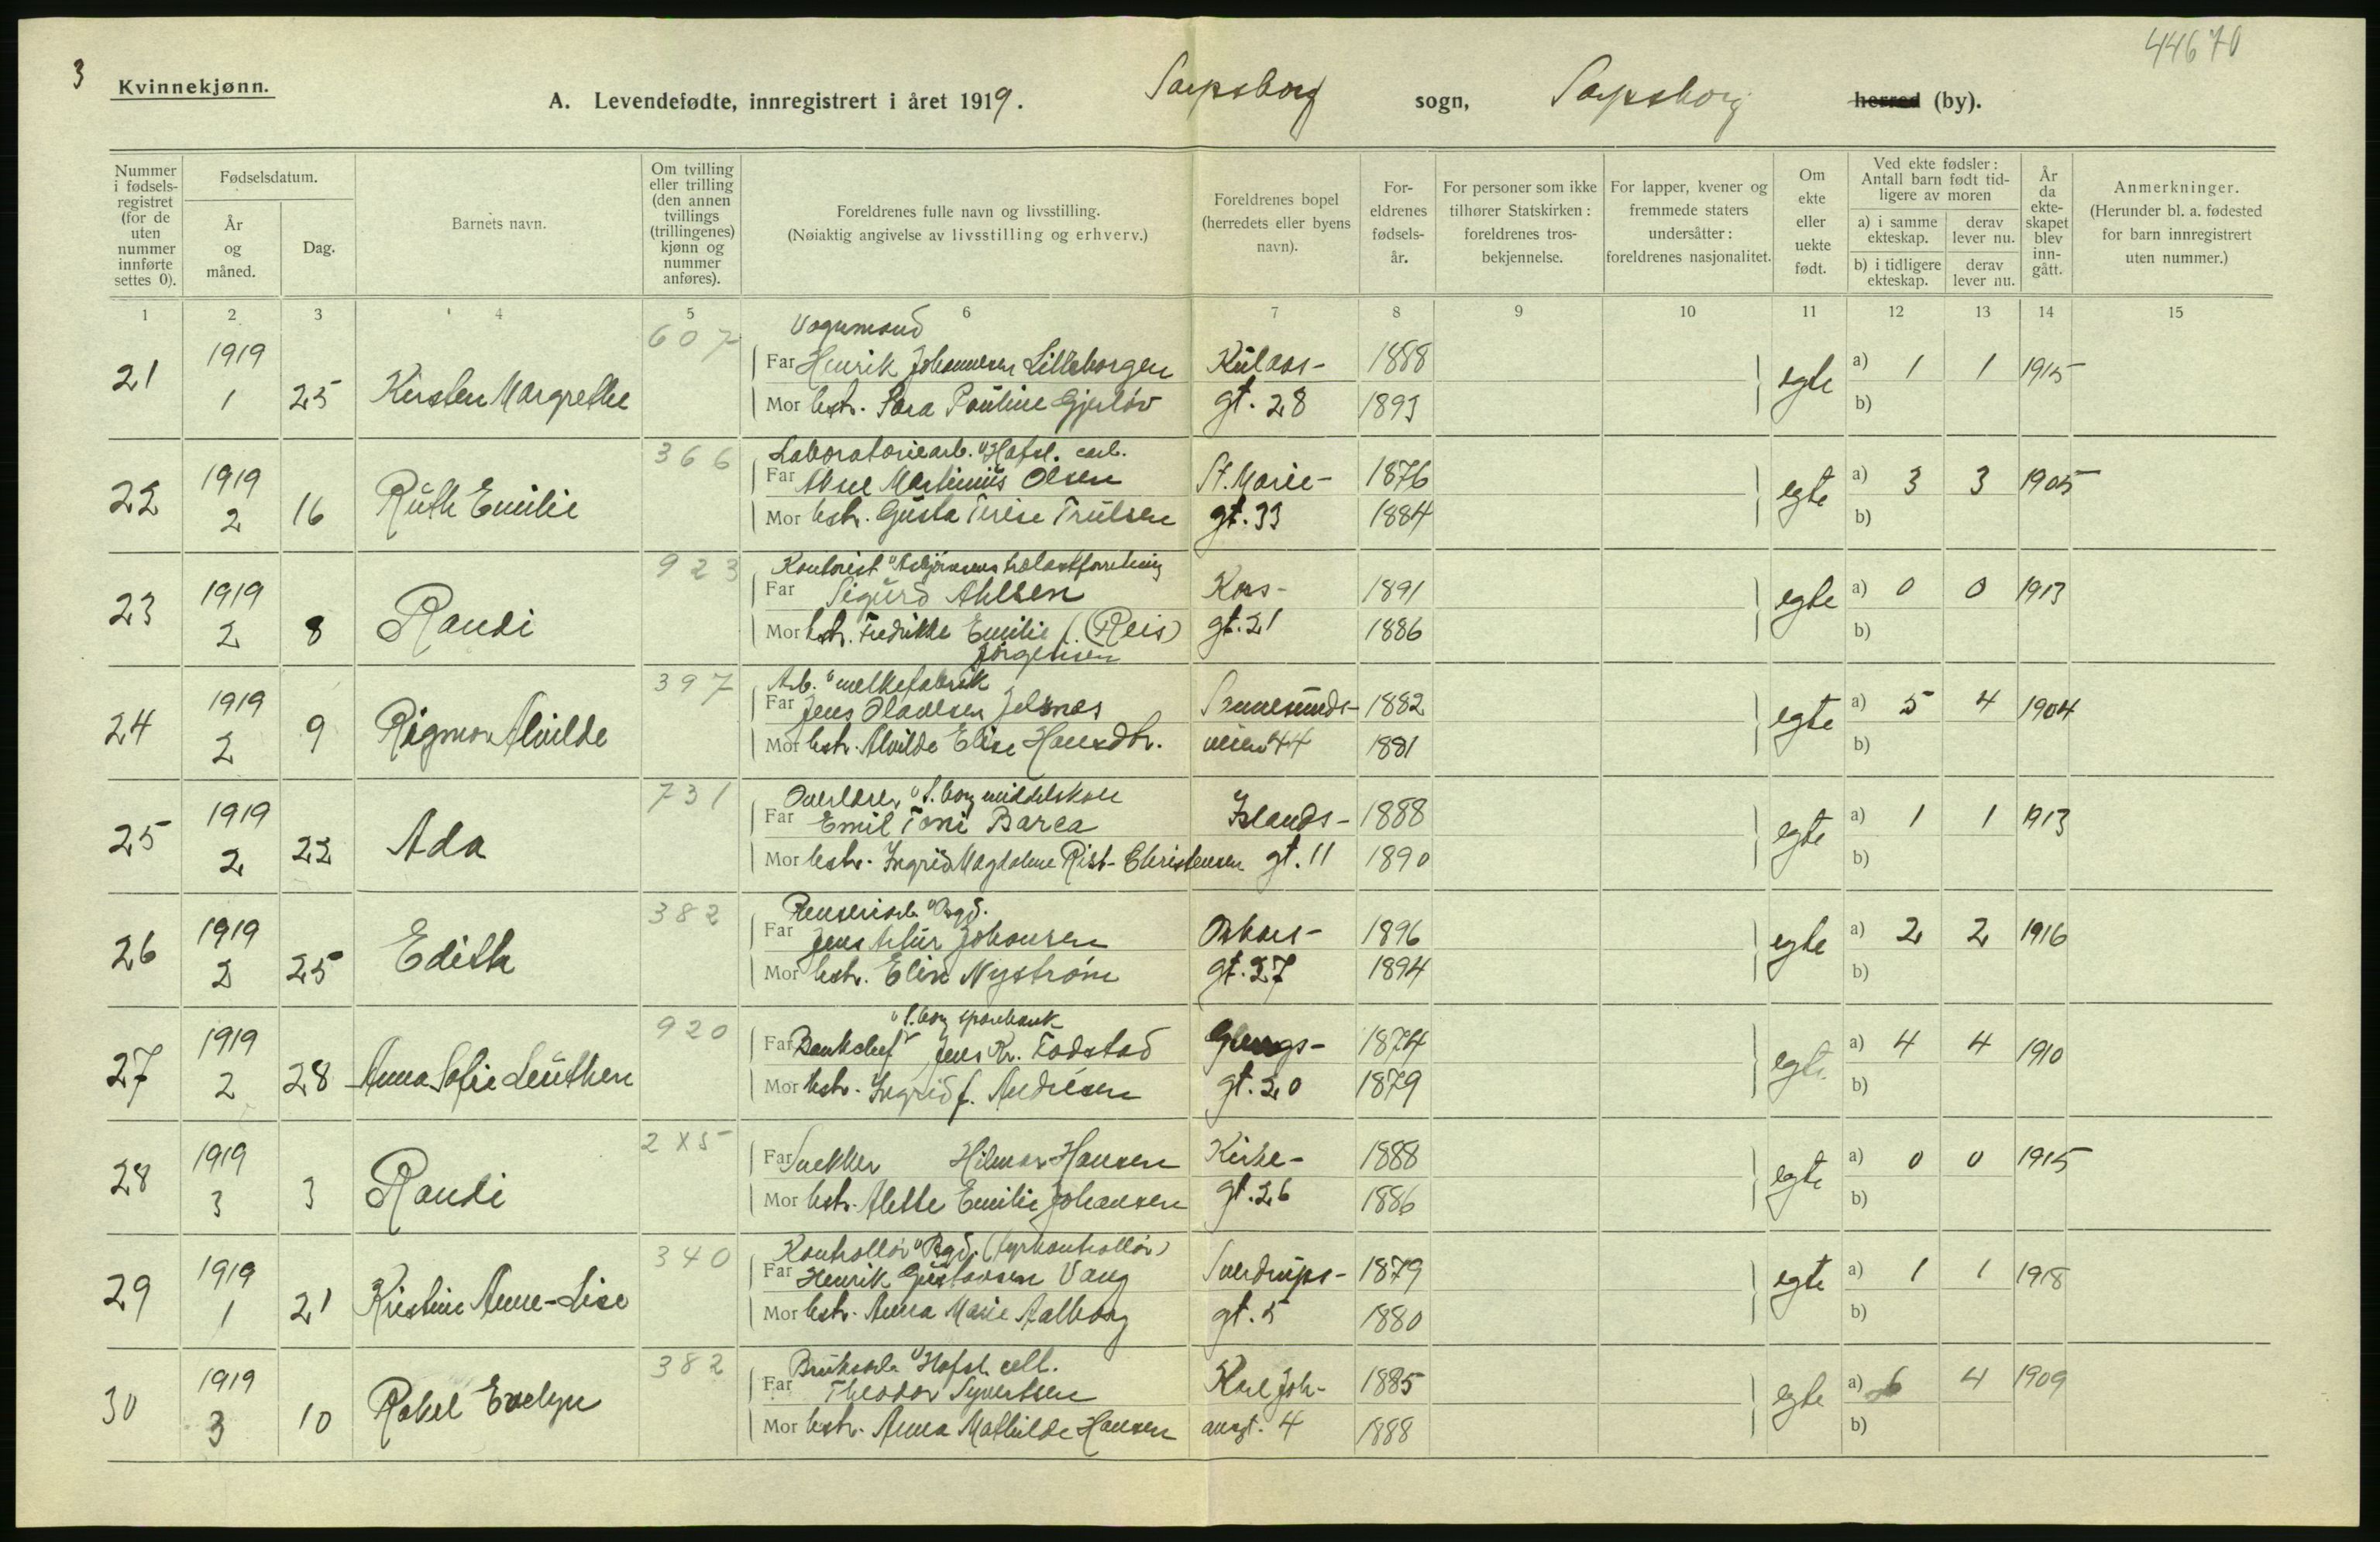 3
44670
Kvinnekjønn.
A. Levendefødte, innregistrert i året 1919. Sarpsborg sogn, Sarpsborg herred (by).
Nummer i fødsels-registret (for de uten nummer innførte settes 0).
Fødselsdatum.
År og måned.
Dag.
Barnets navn.
Om tvilling eller trilling (den annen tvillings (trillingenes) kjønn og nummer anføres).
Foreldrenes fulle navn og livsstilling.
(Nøiaktig angivelse av livsstilling og erhverv.)
Foreldrenes bopel (herredets eller byens navn).
For-eldrenes fødsels-år.
For personer som ikke tilhører Statskirken: foreldrenes tros-bekjennelse.
For lapper, kvener og fremmede staters undersåtter: foreldrenes nasjonalitet.
Om ekte eller uekte født.
Ved ekte fødsler: Antall barn født tid-ligere av moren
a) i samme ekteskap. derav lever nu.
b) i tidligere ekteskap. derav lever nu.
År da ekte-skapet blev inn-gått.
Anmerkninger.
(Herunder bl. a. fødested for barn innregistrert uten nummer.)
1 2 3 4 5 6 7 8 9 10 11 12 13 14 15
607 Vognmand
21 1919 Far Henrik Johannesen Lilleborgen Kulaas- 1888 egte a) 1 1 1915
1 25 Kirsten Margrethe Mor hstr. Sara Pauline Gjerløv gt. 28 1893 b)
366 Laboratoriearb. v/Hafsl. carb.
22 1919 Far Aksel Martinius Olsen St. Marie- 1876 egte a) 3 3 1905
2 16 Ruth Emilie Mor hstr. Gusta Terese Trulsen gt. 33 1884 b)
923 Kontorist v/ Asbjørnsens trælastforretning
23 1919 Far Sigurd Ahlsen Kors- 1891 egte a) 0 0 1913
2 8 Randi Mor hstr. Fredrikke Emilie f. (Reis) gt. 21 1886 b)
Jörgensen
397 Arb. v/ melkefabrik
24 1919 Far Jens Olavesen Jelsnes Sannesunds- 1882 egte a) 5 4 1904
2 9 Rigmor Alvilde Mor hstr. Alvilde Elise Hansdtr. veien 44 1881 b)
731 Overlærer v/ S.borg middelskole
25 1919 Far Emil Toni Barca Islands- 1888 egte a) 1 1 1913
2 22 Ada Mor hstr. Ingrid Magdalene Rist-Christensen gt. 11 1890 b)
382 Renseriarb. v/ Brgd.
26 1919 Far Jens Artur Johansen Oskars- 1896 egte a) 2 2 1916
2 25 Edith Mor hstr. Elin Nyström gt. 27 1894 b)
920 v/ S.borg sparebank
27 1919 Far Bankchef Jens Kr. Todstad Glengs- 1874 egte a) 4 4 1910
2 28 Anna Sofie Leuthen Mor hstr. Ingrid f. Andresen gt. 20 1879 b)
2X5
28 1919 Far Snekker Hilmar Hansen Kirke- 1888 egte a) 0 0 1915
3 3 Randi Mor hstr. Alette Emilie Johansen gt. 26 1886 b)
340 Kontrollör v/ Brgd. (fyrkontrollör)
29 1919 Far Henrik Gustavsen Vang Sverdrups- 1879 egte a) 1 1 1918
1 21 Kristine Anne-Lise Mor hstr. Anna Marie Aalborg gt. 5 1880 b)
382 Bruksarb. v/ Hafsl. cell.
30 1919 Far Theodor Syvertsen Karl Joh- 1885 egte a) 6 4 1909
3 10 Rakel Evelyn Mor hstr. Anna Mathilde Hansen ansgt. 4 1888 b)